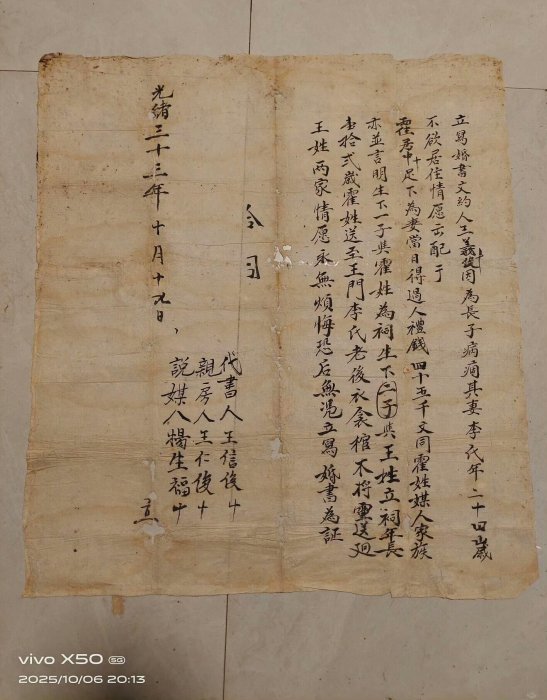 立寫婚書文約人王義俊因為長子病痛其妻李氏年二十四歲
不欲居住情愿出配于
霍居中十足下為妻當日得過人禮錢四十五千文同霍姓媒人家族
亦並言明生下一子與霍姓為祠生下二子與王姓立祠年長
拾弍歲霍姓送至王門李氏老後衣衾棺木將靈送廻
王姓兩家情愿永無煩悔恐后無憑立寫婚書為証
合同
代書人王信俊十
親房人王仁俊十
說媒人楊生福十
立
光緒三十三年十月十九日
vivo X50 5G
2025/10/06 20:13